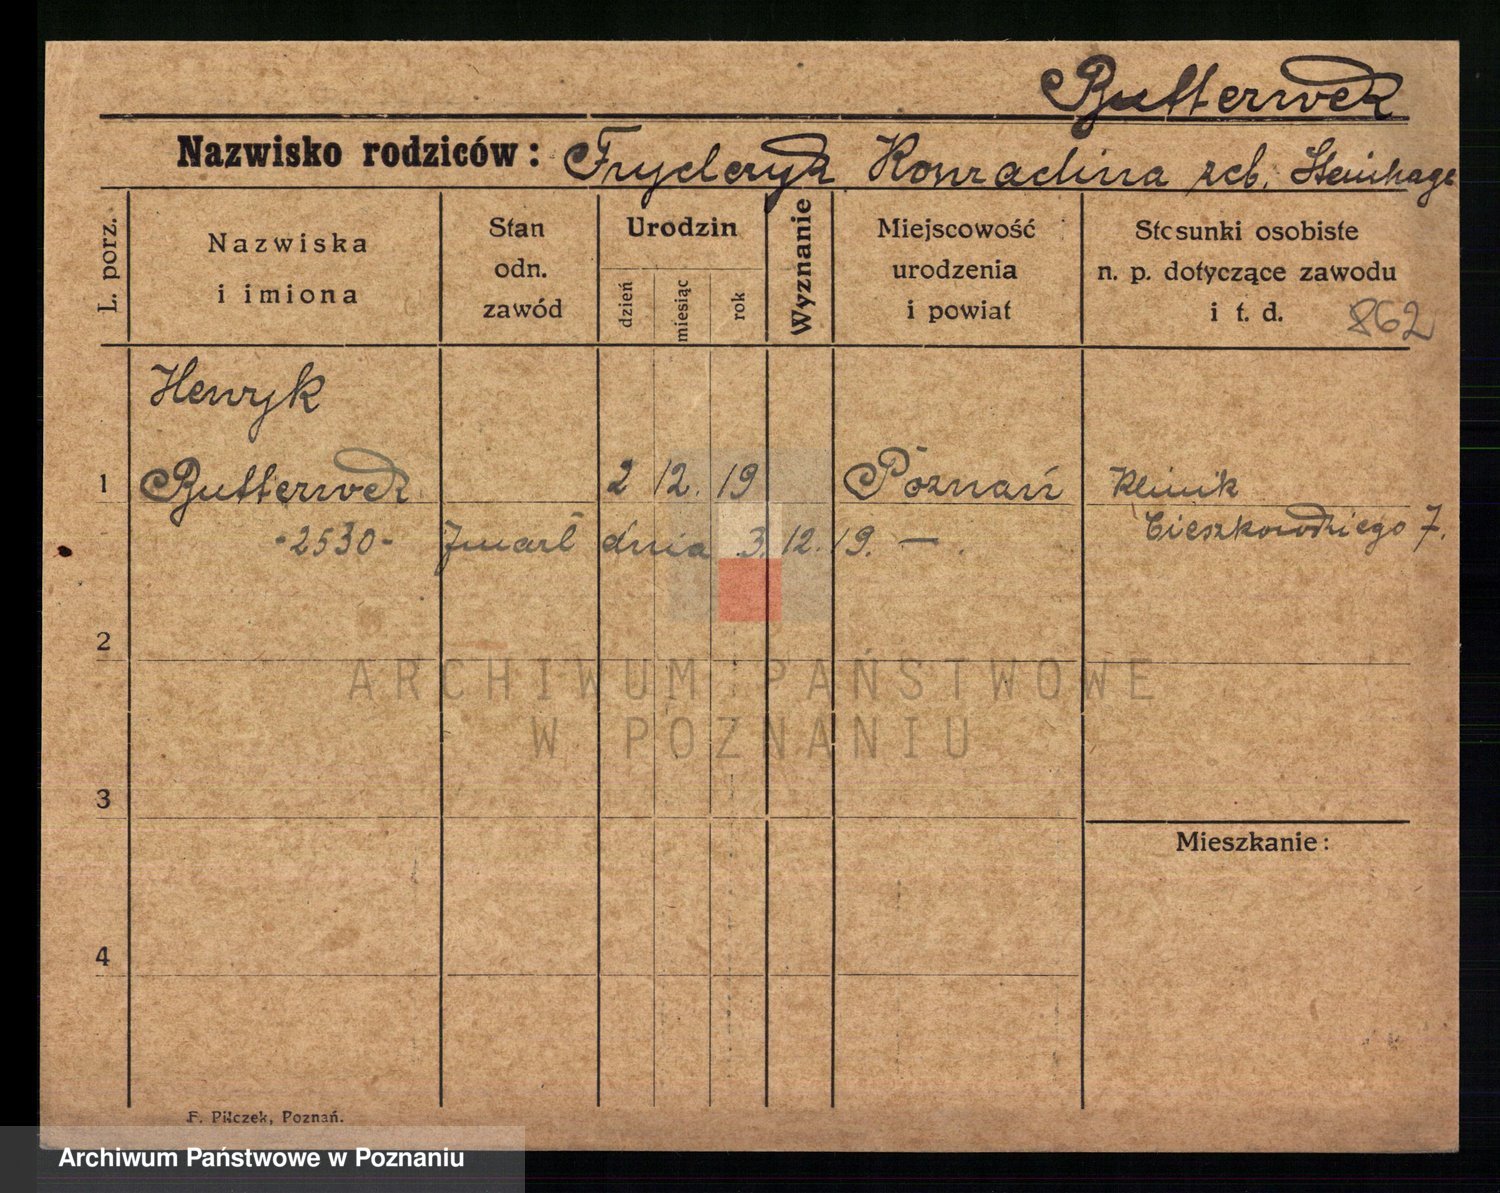 Butterwek
Nazwisko rodziców: Fryderyk Konradina zeb. Steinhage
L. porz.
Nazwiska
i imiona
Stan
odn.
zawód
Urodzin
dzień
miesiąc
rok
Wyznanie
Miejscowość
urodzenia
i powiat
Stosunki osobiste
n. p. dotyczące zawodu
i t. d. 862
Henryk
1 Butterwek 2 12. 19 Poznań Klinik
-2530- Zmarł dnia 3. 12. 19. — . Cieszkowskiego 7.
2
ARCHIWUM PAŃSTWOWE
W POZNANIU
3
Mieszkanie:
4
F. Pilczek, Poznań.
Archiwum Państwowe w Poznaniu